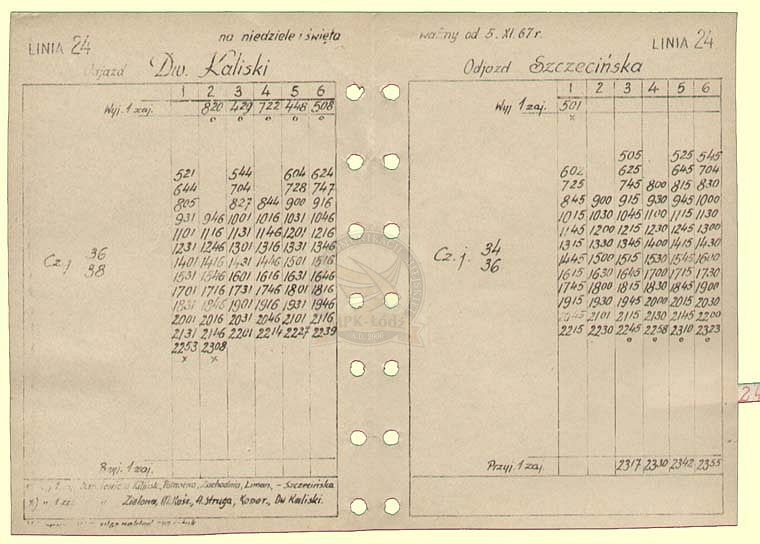 LINIA 24
na niedziele i święta
ważny od 5. XI. 67 r.
LINIA 24
Odjazd Dw. Kaliski
Odjazd Szczecińska
1 2 3 4 5 6
Wyj. 1 zaj. 820 429 722 448 508
o o o o o
521 544 604 624
644 704 728 747
805 827 844 900 916
931 946 1001 1016 1031 1046
1101 1116 1131 1146 1201 1216
1231 1246 1301 1316 1331 1346
Cz. j. 36
38
1401 1416 1431 1446 1501 1516
1531 1546 1601 1616 1631 1646
1701 1716 1731 1746 1801 1816
1831 1846 1901 1916 1931 1946
2001 2016 2031 2046 2101 2116
2131 2146 2201 2214 2227 2239
2253 2308
x x
Przyj. 1 zaj.
Zachodnia, Liman. - Szczecińska
x) " 1 zaj. " Zielona, Ż, A. Struga, Koper., Dw Kaliski.
1 2 3 4 5 6
Wyj 1 zaj. 501
x
505 525 545
602 625 645 704
725 745 800 815 830
845 900 915 930 945 1000
1015 1030 1045 1100 1115 1130
1145 1200 1215 1230 1245 1300
1315 1330 1345 1400 1415 1430
Cz. j. 34
36
1445 1500 1515 1530 1545 1600
1615 1630 1645 1700 1715 1730
1745 1800 1815 1830 1845 1900
1915 1930 1945 2000 2015 2030
2045 2101 2115 2130 2145 2200
2215 2230 2245 2258 2310 2323
o o o o
Przyj. 1 zaj. 2317 2330 2342 2355
24